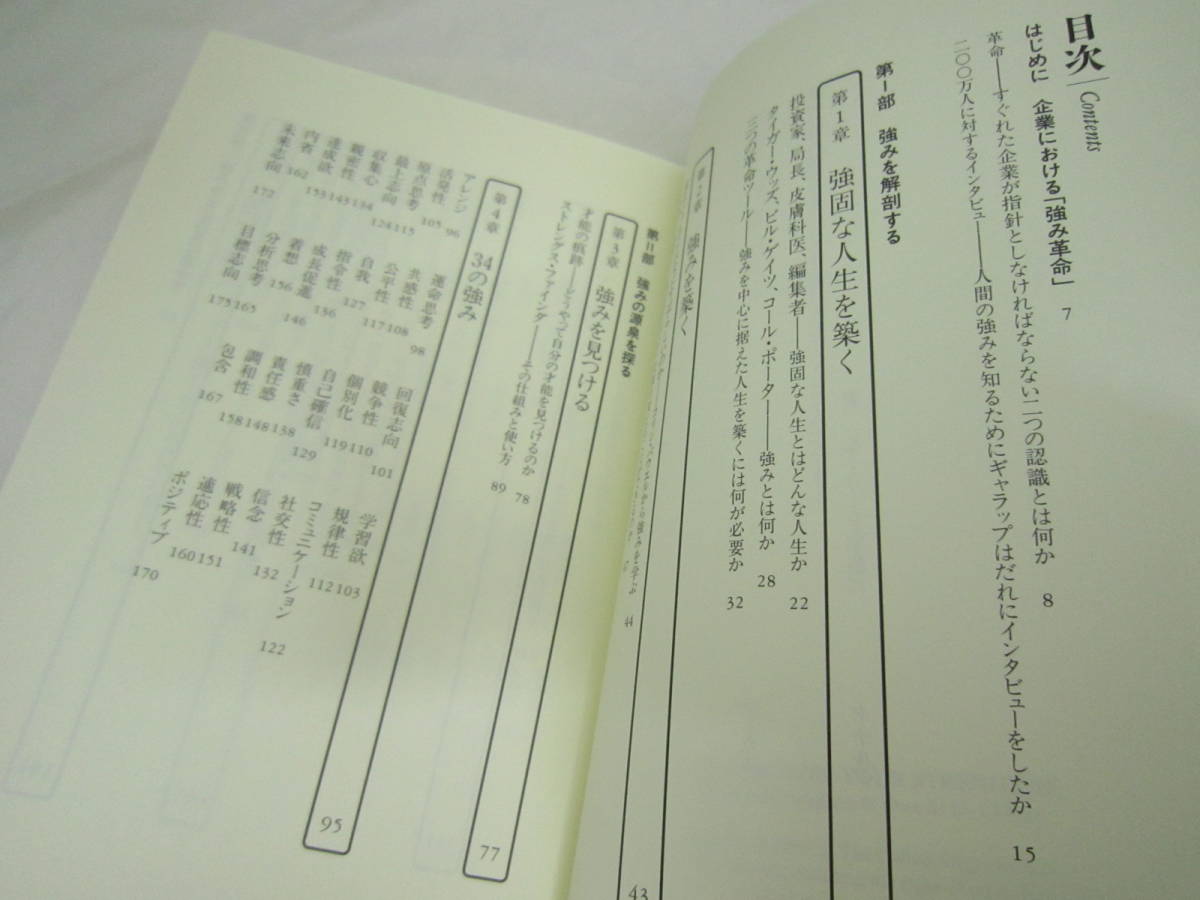 目次 Contents
はじめに 企業における「強み革命」 7
革命――すぐれた企業が指針としなければならない二つの認識とは何か 8
二〇〇万人に対するインタビュー――人間の強みを知るためにギャラップはだれにインタビューをしたか 15
第I部 強みを解剖する
第1章 強固な人生を築く
投資家、局長、皮膚科医、編集者――強固な人生とはどんな人生か 22
タイガー・ウッズ、ビル・ゲイツ、コール・ポーター――強みとは何か 28
三つの革命ツール――強みを中心に据えた人生を築くには何が必要か 32
第2章 強みを築く 43
強みを学ぶ 44
第II部 強みの源泉を探る
第3章 強みを見つける 77
才能の痕跡――どうやって自分の才能を見つけるのか 78
ストレングス・ファインダー――その仕組みと使い方 89
第4章 34の強み 95
アレンジ 96 運命思考 98 回復志向 101 学習欲 103
活発性 105 共感性 108 競争性 110 規律性 112
原点思考 115 公平性 117 個別化 119 コミュニケーション 122
最上志向 124 自我 127 自己確信 129 社交性 132
収集心 134 指令性 136 慎重さ 138 信念 141
親密性 143 成長促進 146 責任感 148 戦略性 151
達成欲 153 着想 156 調和性 158 適応性 160
内省 162 分析思考 165 包含 167 ポジティブ 170
未来志向 172 目標志向 175